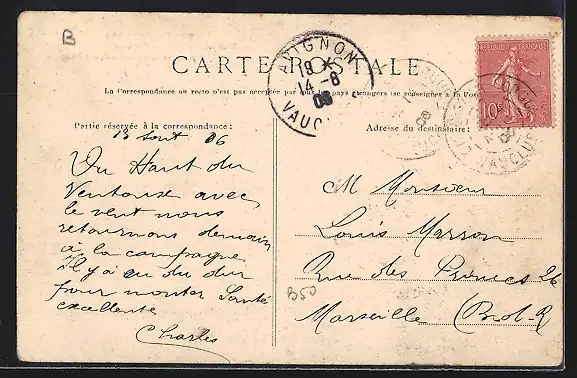 B
CARTE POSTALE
La Correspondance au recto n'est pas acceptée par tous les pays étrangers (se renseigner à la Poste
Partie réservée à la correspondance :
Adresse du destinataire :
AVIGNON
14-8
08
VAUCLUSE
REPUBLIQUE FRANÇAISE
10c
VAUCLUSE
13 Aout 06
Du Haut du
Ventoux avec
le vent nous
retournons demain
à la campagne
il y a eu du dur
pour monter Santé
excellente
Charles
M Monsieur
Louis Masson
Rue des Princes 26
B50
Marseille